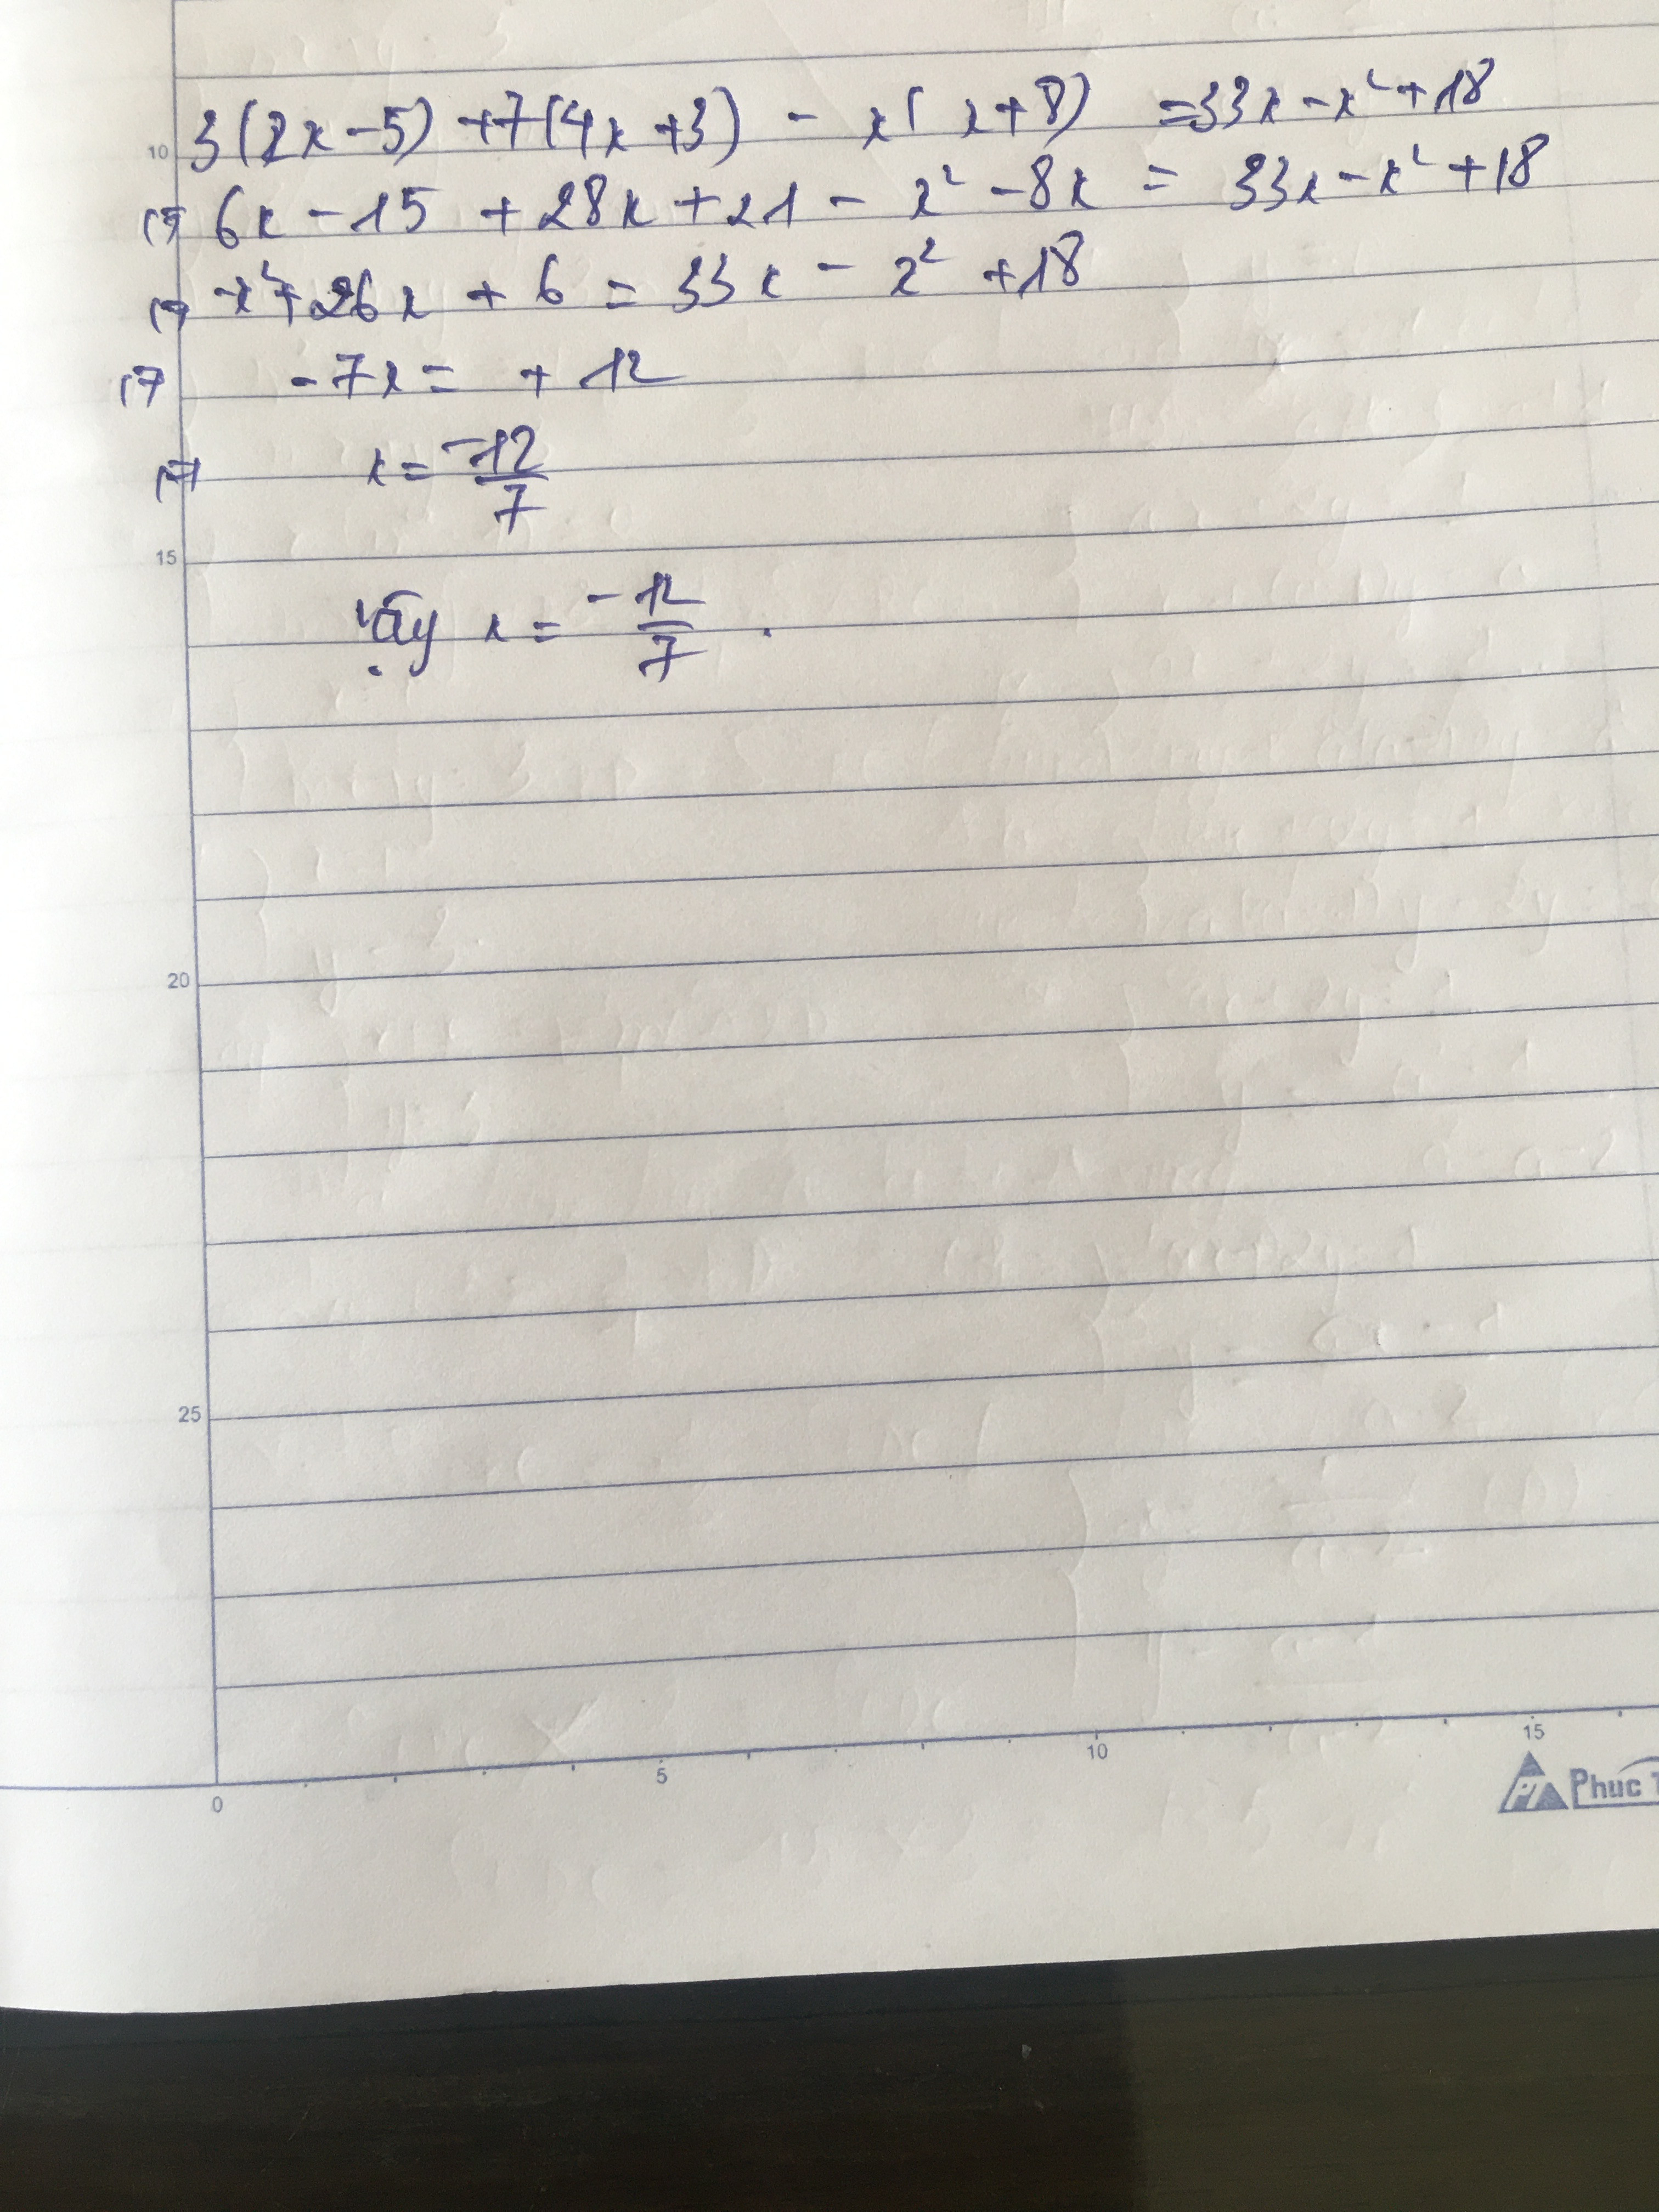 3(2x-5) +7(4x+3) - x(x+8) =33x-x²+18
10
(=) 6x-15 +28x+21-x²-8x = 33x-x²+18
(=) -x²+26x+6 = 33x-x²+18
(=) -7x= +12
(=) x= -12/7
15
Vậy x= -12/7.
20
25
0 5 10 15
PT Phuc